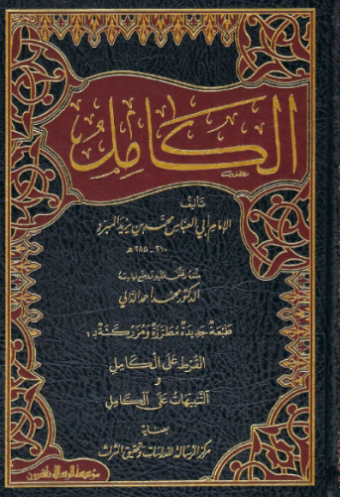 الكامل
تأليف
الإمام أبي العباس محمد بن يزيد المبرد
٢١٠ - ٢٨٥ هـ
الدكتور محمد أحمد الدالي
طبعة جديدة مطرزة ومزركشة بـ :
القرط على الكامل
و
التنبيهات على الكامل
بعناية
مركز الرسالة للدراسات وتحقيق التراث
مؤسسة الرسالة ناشرون